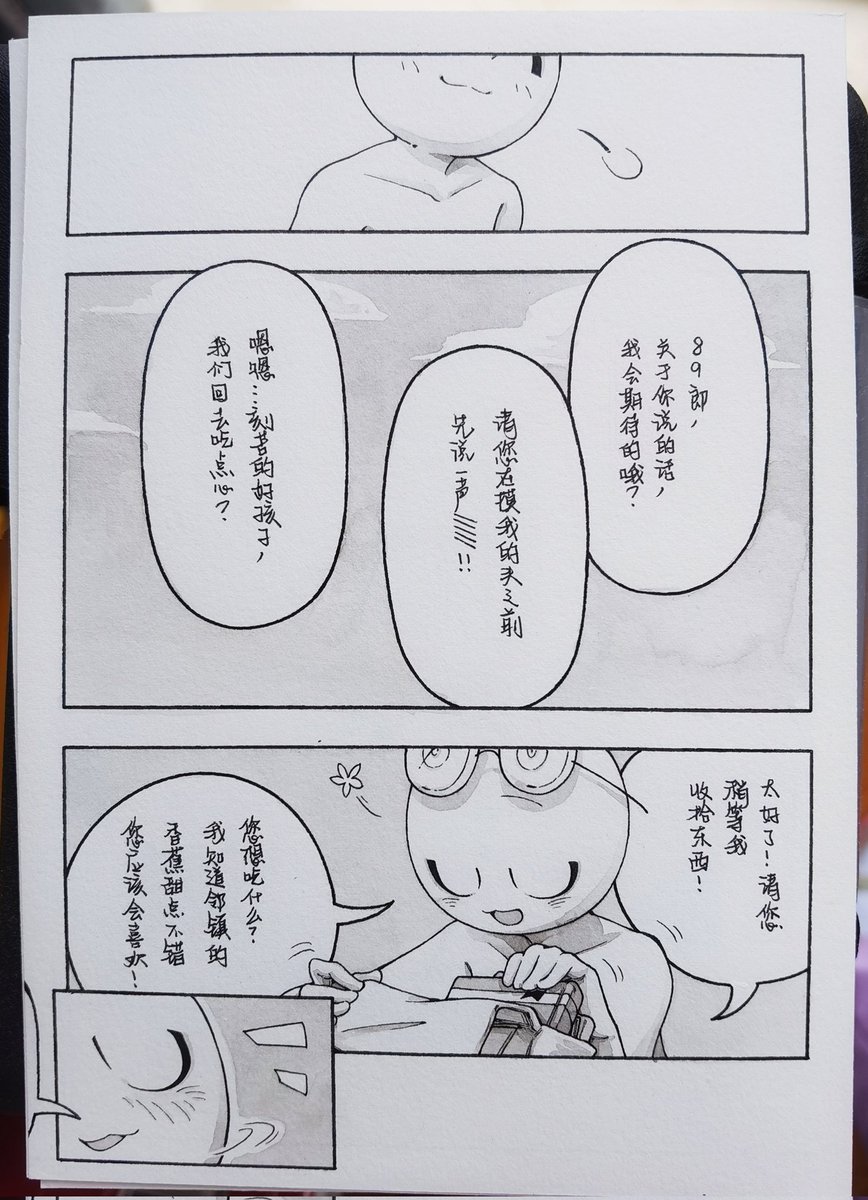 89郎，
关于你说的话，
我会期待的哦？
请您在摸我的头之前
先说一声!!
嗯嗯…刻苦的好孩子，
我们回去吃点心？
太好了！请您
稍等我
收拾东西！
您想吃什么？
我知道邻镇的
香蕉甜点不错
您应该会喜欢！